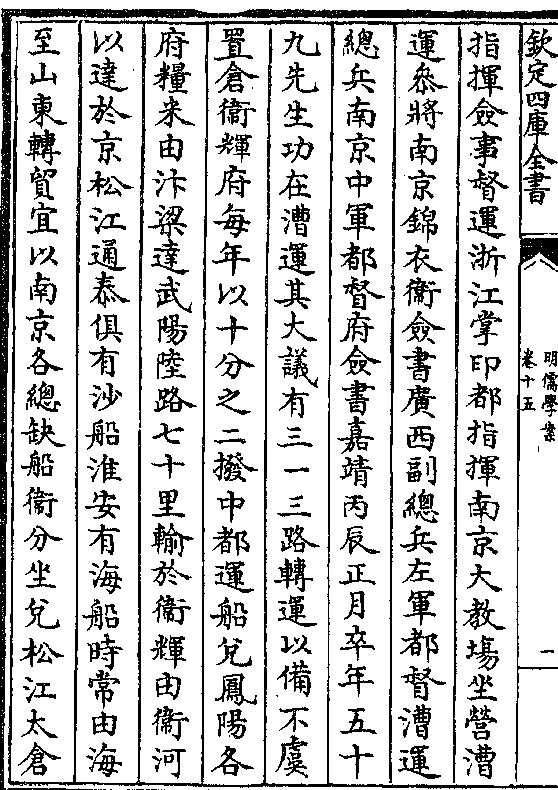 欽定四庫全書
明儒學案
卷十五
一
指揮僉事督運浙江掌印都指揮南京大教場坐營漕
運叅將南京錦衣衞僉書廣西副總兵左軍都督漕運
總兵南京中軍都督府僉書嘉靖丙辰正月卒年五十
九先生功在漕運其大議有三一三路轉運以備不虞
置倉衞輝府每年以十分之二撥中都運船兌鳳陽各
府糧米由汴梁達武陽陸路七十里輸於衞輝由衞河
以達於京松江通泰俱有沙船淮安有海船時常由海
至山東轉貿宜以南京各總缺船衞分坐兌松江太倉